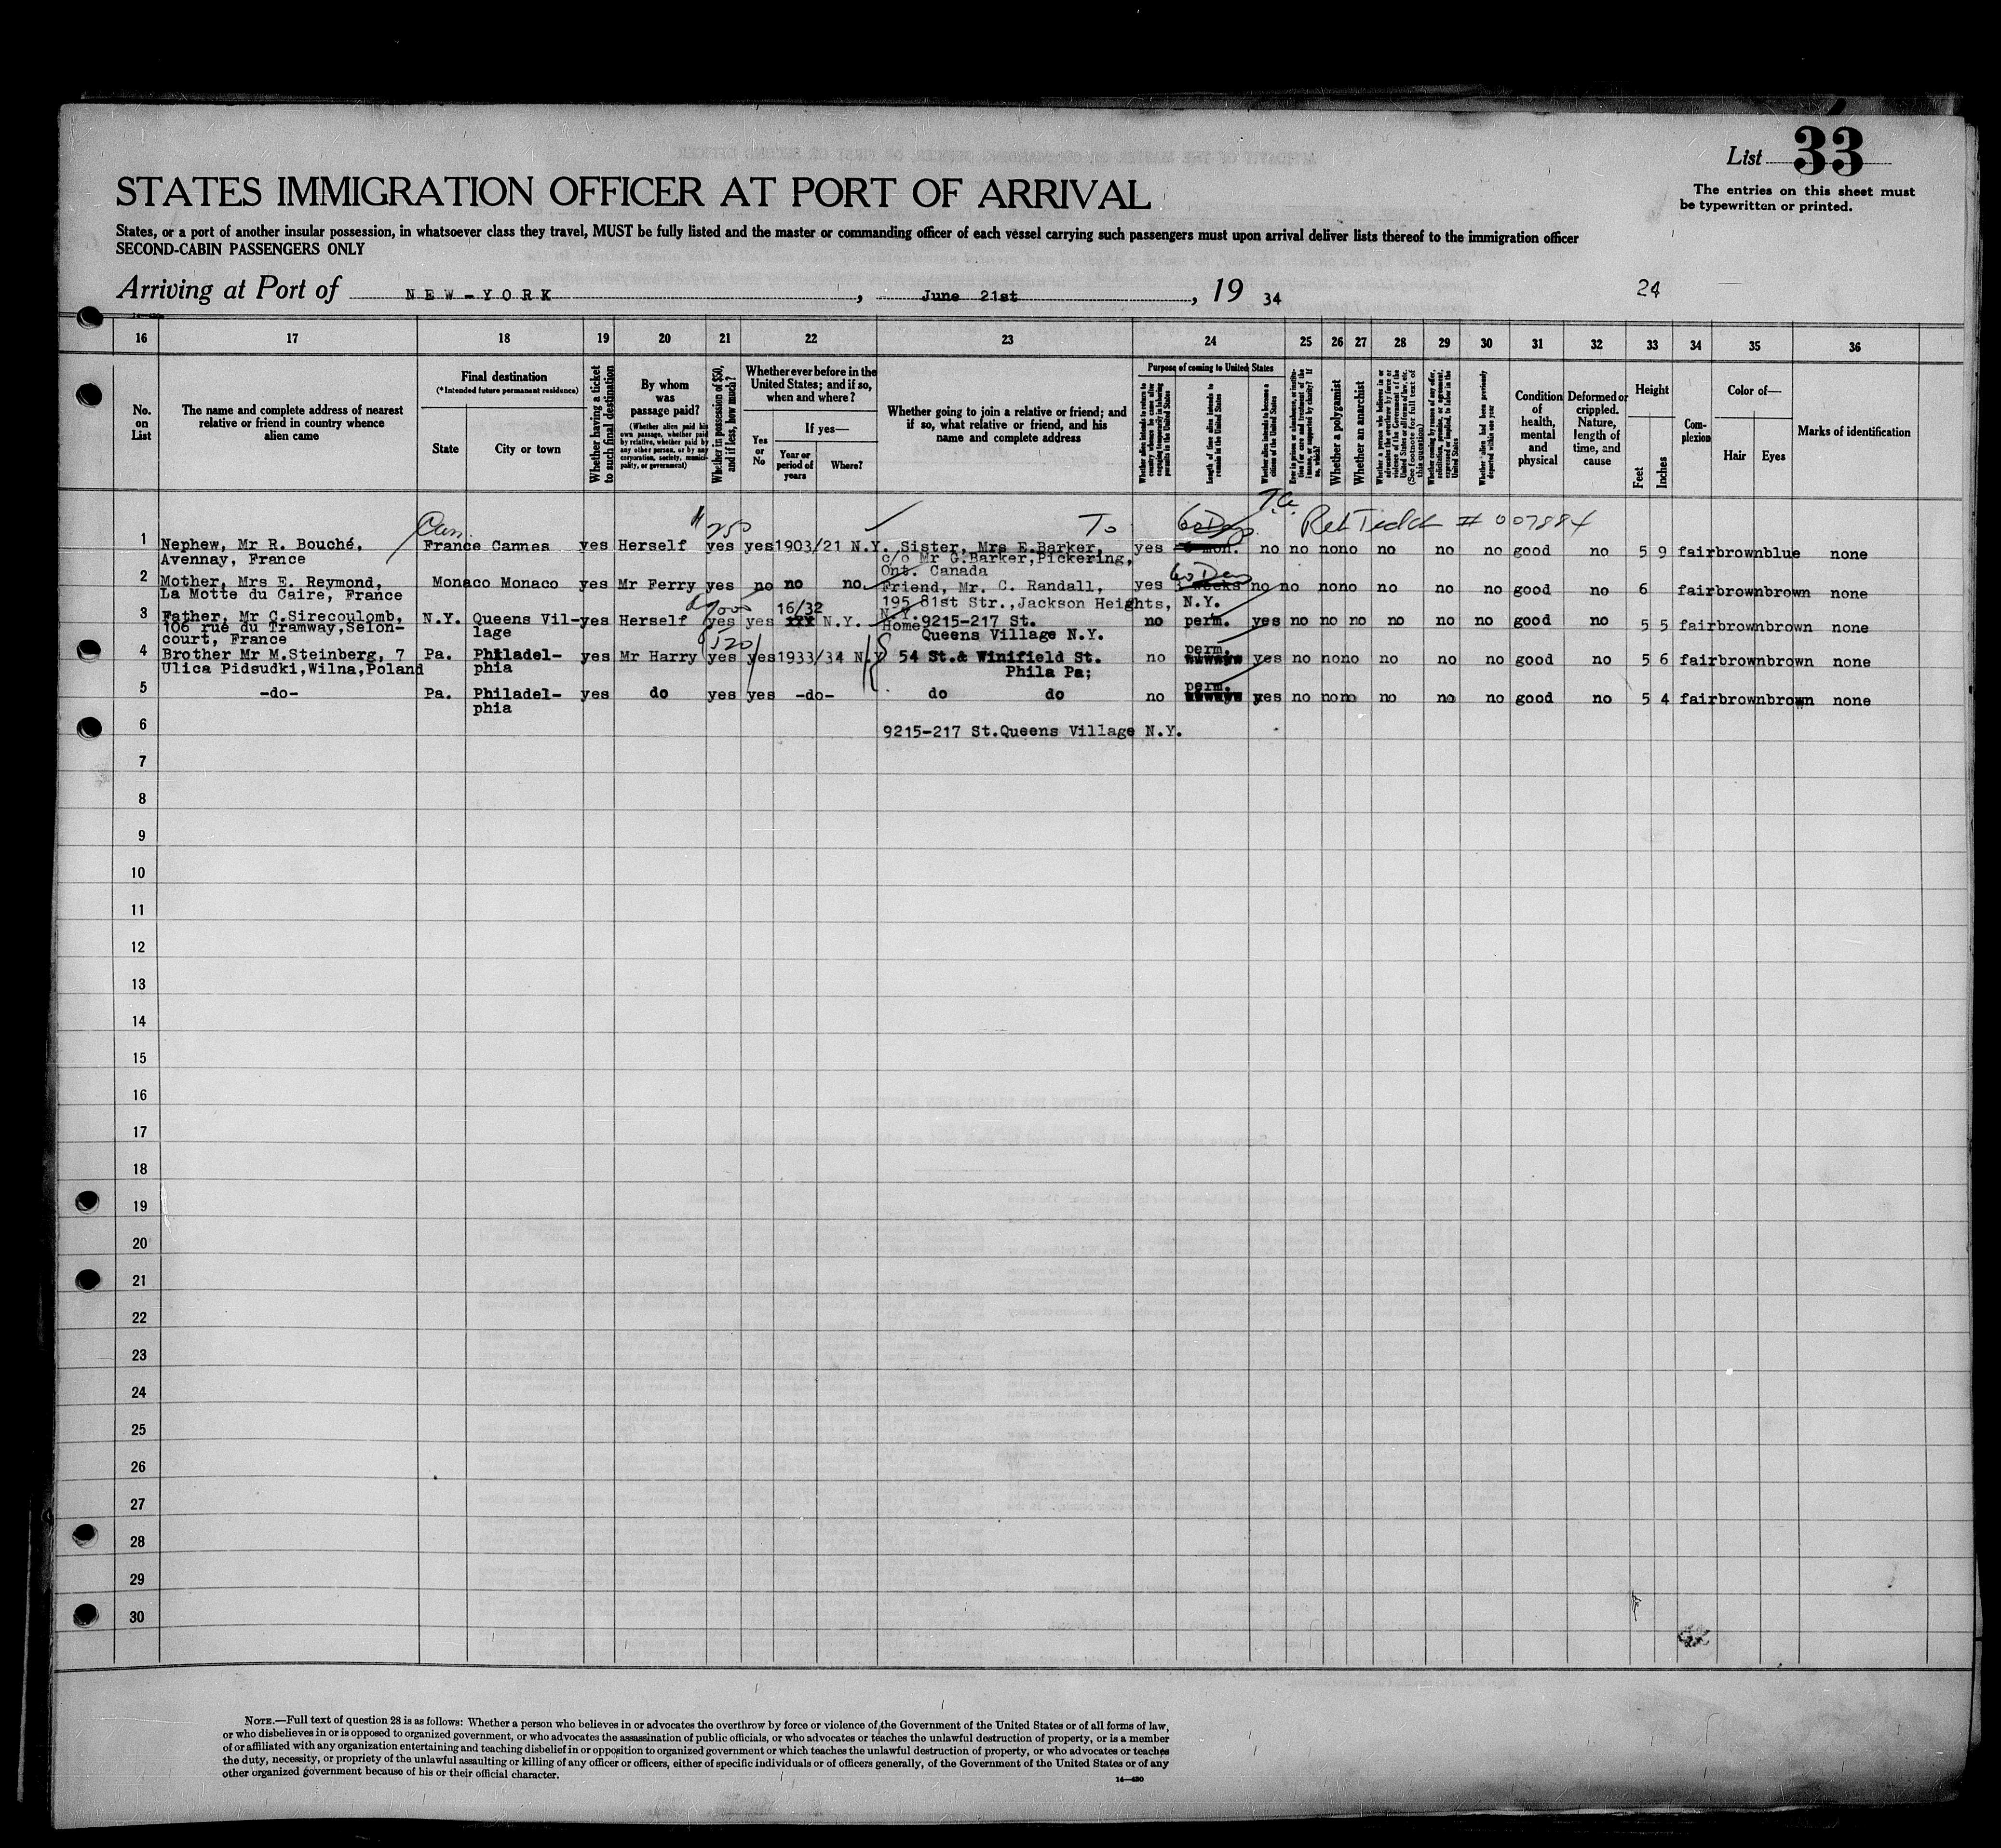 List 33
The entries on this sheet must
be typewritten or printed.
STATES IMMIGRATION OFFICER AT PORT OF ARRIVAL
States, or a port of another insular possession, in whatsoever class they travel, MUST be fully listed and the master or commanding officer of each vessel carrying such passengers must upon arrival deliver lists thereof to the immigration officer
SECOND-CABIN PASSENGERS ONLY
Arriving at Port of NEW-YORK, June 21st, 19 34
24
16 17 18 19 20 21 22 23 24 25 26 27 28 29 30 31 32 33 34 35 36
No. on List
The name and complete address of nearest relative or friend in country whence alien came
Final destination
(*Intended future permanent residence)
State
City or town
Whether having a ticket to such final destination
By whom was passage paid?
(Whether alien paid his own passage, whether paid by relative, whether paid by any other person, or by any corporation, society, municipality, or government)
Whether in possession of $50, and if less, how much?
Whether ever before in the United States; and if so, when and where?
Yes or No
If yes—
Year or period of years
Where?
Whether going to join a relative or friend; and if so, what relative or friend, and his name and complete address
Purpose of coming to United States
Whether alien intends to return to country whence he came after engaging temporarily in laboring pursuits in the United States
Length of time alien intends to remain in the United States
Whether alien intends to become a citizen of the United States
Whether a polygamist
Whether an anarchist
Whether alien had been previously deported within one year
Condition of health, mental and physical
Deformed or crippled. Nature, length of time, and cause
Height
Feet
Inches
Complexion
Color of—
Hair
Eyes
Marks of identification
Can. 25 To 60 Days Ret Ticket # 007884
1 Nephew, Mr R. Bouché, France Cannes yes Herself yes yes 1903/21 N.Y. Sister, Mrs E.Barker, yes 6 mon. no no no no no no no good no 5 9 fair brown blue none
Avennay, France c/o Mr G.Barker,Pickering,
Ont. Canada
60 Days
2 Mother, Mrs E. Reymond, Monaco Monaco yes Mr Ferry yes no no no Friend, Mr. C. Randall, yes 3 weeks no no no no no no no good no 6 fair brown brown none
La Motte du Caire, France 195 81st Str.,Jackson Heights, N.Y.
N.Y.
16/32
3 Father, Mr C.Sirecoulomb, N.Y. Queens Vil- yes Herself yes yes N.Y. Home 9215-217 St. no perm. yes no no no no no no good no 5 5 fair brown brown none
106 rue du Tramway,Seloncourt, France lage Queens Village N.Y.
520
4 Brother Mr M.Steinberg, 7 Pa. Philadel- yes Mr Harry yes yes 1933/34 N.Y 54 St.& Winifield St. no perm. yes no no no no no no good no 5 6 fair brown brown none
Ulica Pidsudki,Wilna,Poland phia Phila Pa;
5 -do- Pa. Philadel- yes do yes yes -do- do do no perm. yes no no no no no no good no 5 4 fair brown brown none
phia
6 9215-217 St.Queens Village N.Y.
7
8
9
10
11
12
13
14
15
16
17
18
19
20
21
22
23
24
25
26
27
28
29
30
NOTE.—Full text of question 28 is as follows: Whether a person who believes in or advocates the overthrow by force or violence of the Government of the United States or of all forms of law,
or who disbelieves in or is opposed to organized government, or who advocates the assassination of public officials, or who advocates or teaches the unlawful destruction of property, or is a member
of or affiliated with any organization entertaining and teaching disbelief in or opposition to organized government or which teaches the unlawful destruction of property, or who advocates or teaches
the duty, necessity, or propriety of the unlawful assaulting or killing of any officer or officers, either of specific individuals or of officers generally, of the Government of the United States or of any
other organized government because of his or their official character.
14—430